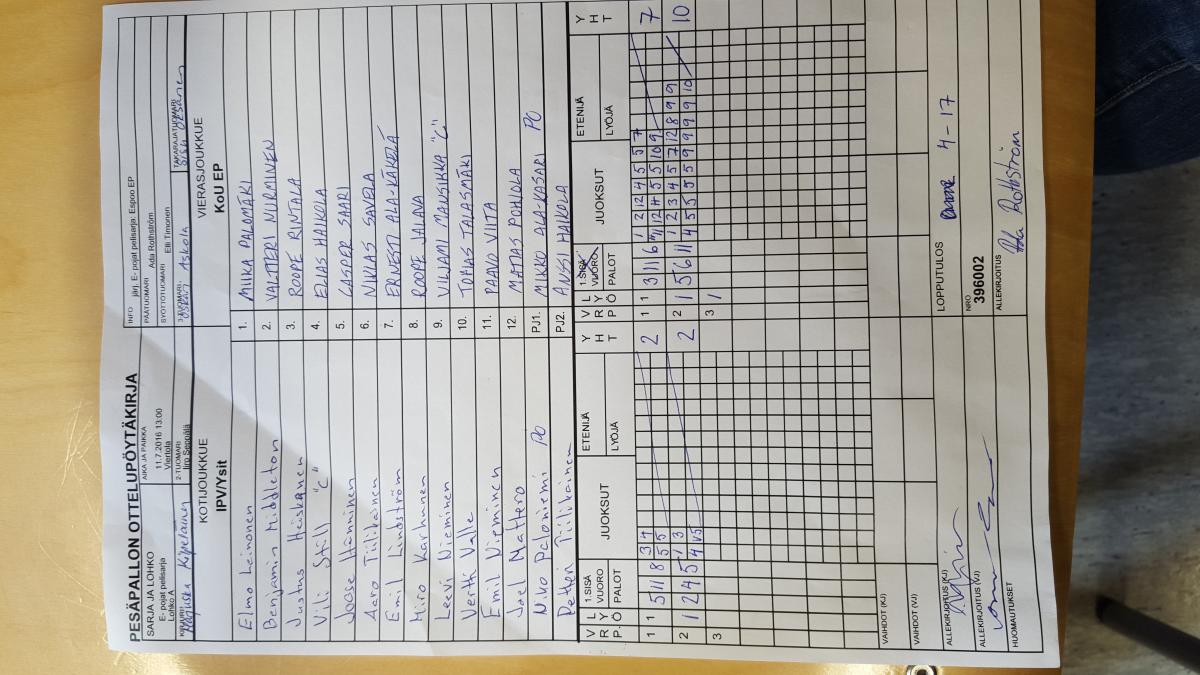 PESÄPALLON OTTELUPÖYTÄKIRJA
SARJA JA LOHKO
E- pojat pelisarja
Lohko A
AIKA JA PAIKKA
11.7.2016 13:00
Viertola
INFO järj. E- pojat pelisarja: Espoo EP
PÄÄTUOMARI Ada Rothström
SYÖTTÖTUOMARI Elli Timonen
KIRJURI
2-TUOMARI
Iiro Seppälä
3-TUOMARI
Askola
TAKARAJATUOMARI
KOTIJOUKKUE
IPV/Ysit
VIERASJOUKKUE
KoU EP
Elmo Leinonen 1. MIIKA PALOMÄKI
Benjamin Middleton 2. VALTTERI NURMINEN
Justus Heiskanen 3. ROOPE RINTALA
Vili Still "C" 4. ELIAS HAIKOLA
Joose Hänninen 5. CASPER SAARI
Aaro Tiilikainen 6. NIKLAS SAVELA
Emil Lindström 7. ERNESTI ALA-KÄKELÄ
Miro Karhunen 8. ROOPE JALAVA
Leevi Nieminen 9. VILJAMI MANSIKKA "C"
Vertti Valle 10. TOPIAS TALASMÄKI
Emil Nieminen 11. PAAVO VIITA
Joel Mattero 12. MATIAS POHJOLA
Niko Paloniemi PO PJ1. MIKKO ALA-KASARI PO
Petteri Tiilikainen PJ2. ANSSI HAIKOLA
V L
R Y
P Ö
1.SISÄ
VUORO
PALOT
JUOKSUT
ETENIJÄ
LYÖJÄ
Y
H
T
V L
R Y
P Ö
1.SISÄ
VUORO
PALOT
JUOKSUT
ETENIJÄ
LYÖJÄ
Y
H
T
1 1 5 11 8
2
1 1 3 11 6
7
2 1 2 4 5
2
2 1 5 6 11
1 2 3 4 5 7 12 8 9 9
4 5 5 5 9 9 9 9 9 10
10
3
3 1
VAIHDOT (KJ)
VAIHDOT (VJ)
ALLEKIRJOITUS (KJ)
LOPPUTULOS 4-17
ALLEKIRJOITUS (VJ)
NRO
396002
HUOMAUTUKSET
ALLEKIRJOITUS
Ada Rothström